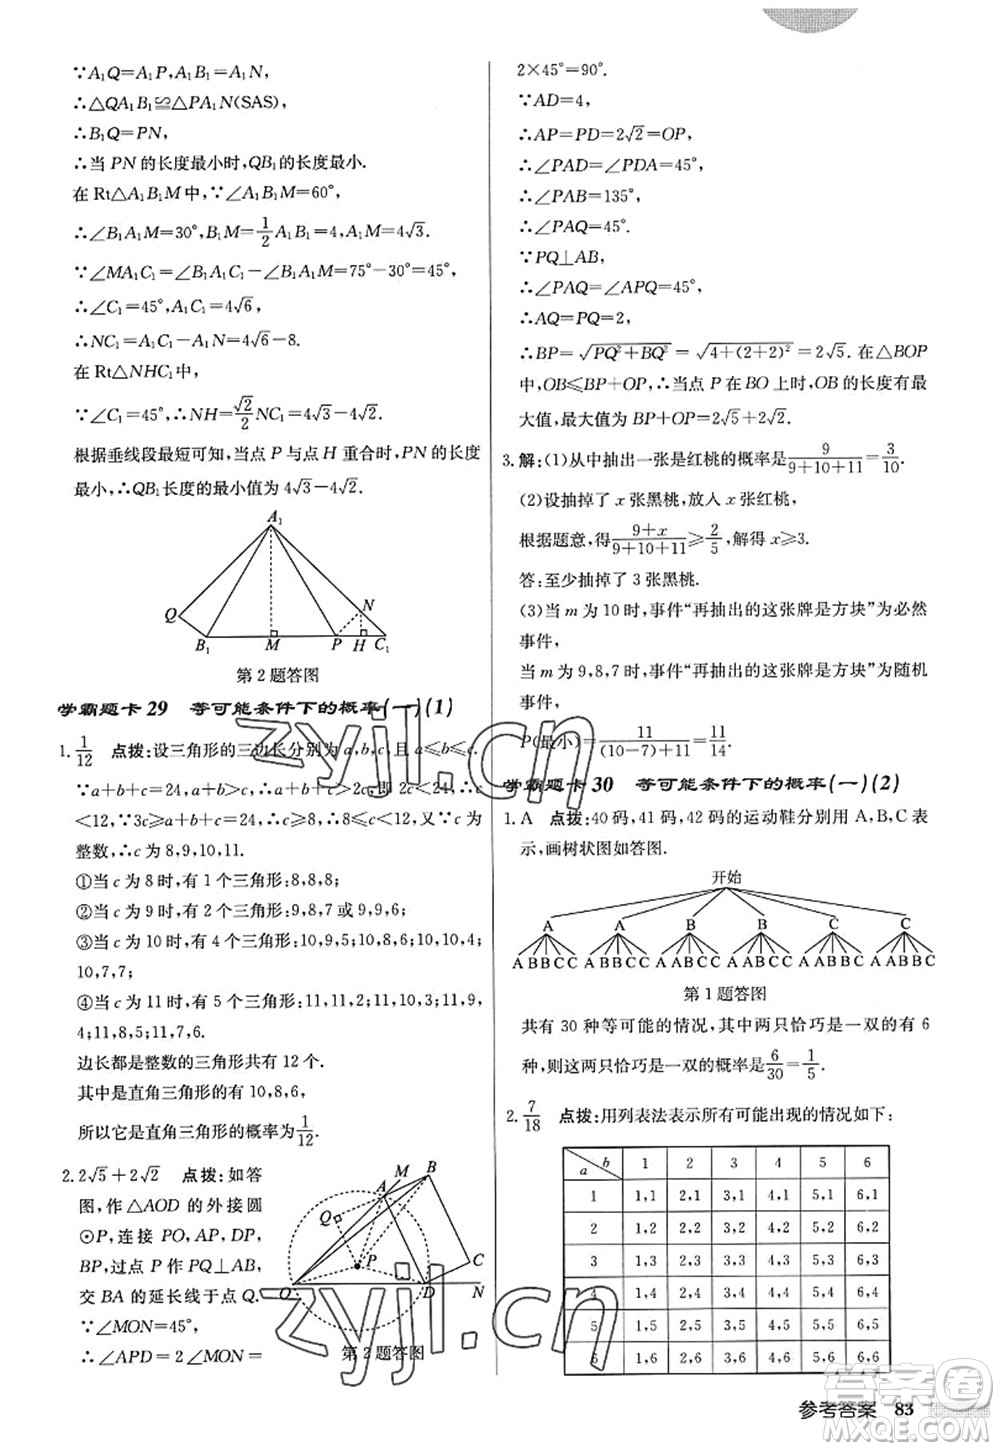 ∵A₁Q=A₁P,A₁B₁=A₁N,
∴△QA₁B₁≌△PA₁N(SAS),
∴B₁Q=PN,
∴当 PN 的长度最小时,QB₁的长度最小.
在 Rt△A₁B₁M 中,∵∠A₁B₁M=60°,
∴∠B₁A₁M=30°,B₁M=1/2A₁B₁=4,A₁M=4√3.
∵∠MA₁C₁=∠B₁A₁C₁-∠B₁A₁M=75°-30°=45°,
∴∠C₁=45°,A₁C₁=4√6,
∴NC₁=A₁C₁-A₁N=4√6-8.
在 Rt△NHC₁中,
∵∠C₁=45°,∴NH=√2/2NC₁=4√3-4√2.
根据垂线段最短可知,当点 P 与点 H 重合时,PN 的长度
最小,∴QB₁长度的最小值为 4√3-4√2.
A₁
Q
N
B₁ M P H C₁
第 2 题答图
学霸题卡 29 等可能条件下的概率(一)(1)
1. 1/12 点拨:设三角形的三边长分别为 a,b,c,且 a≤b≤c.
∵a+b+c=24,a+b>c,∴a+b+c=24>2c,即 2c<24,∴c
<12,又∵3c≥a+b+c=24,∴c≥8,∴8≤c<12,又∵c 为
整数,∴c 为 8,9,10,11.
①当 c 为 8 时,有 1 个三角形:8,8,8;
②当 c 为 9 时,有 2 个三角形:9,8,7 或 9,9,6;
③当 c 为 10 时,有 3 个三角形:10,9,5;10,8,6;
10,7,7;
④当 c 为 11 时,有 6 个三角形:11,11,2;11,10,3;11,9,
4;11,8,5;11,7,6.
边长都是整数的三角形共有 12 个.
其中是直角三角形的有 10,8,6,
所以它是直角三角形的概率为1/12.
2. 2√5+2√2 点拨:如答
图,作△AOD 的外接圆
⊙P,连接 PO,AP,DP,
BP,过点 P 作 PQ⊥AB,
交 BA 的延长线于点 Q.
∵∠MON=45°,
∴∠APD=2∠MON=
M B
A
Q
P C
O D N
第 2 题答图
2×45°=90°.
∵AD=4,
∴AP=PD=2√2=OP,
∴∠PAD=∠PDA=45°,
∴∠PAB=135°,
∴∠PAQ=45°.
∵PQ⊥AB,
∴∠PAQ=∠APQ=45°,
∴AQ=PQ=2,
∴BP=√(PQ²+BQ²)=√(4+(2+2)²)=2√5.在△BOP
中,OB≤BP+OP,∴当点 P 在 BO 上时,OB 的长度有最
大值,最大值为 BP+OP=2√5+2√2.
3. 解:(1)从中抽出一张是红桃的概率是9/(9+10+11)=3/10.
(2)设抽掉了 x 张黑桃,放人 x 张红桃,
根据题意,得(9+x)/(9+10+11)≥2/5,解得 x≥3.
答:至少抽掉了 3 张黑桃.
(3)当 m 为 10 时,事件“再抽出的这张牌是方块”为必然
事件,
当 m 为 9,8,7 时,事件“再抽出的这张牌是方块”为随机
事件,
P(最小)=11/((10-7)+11)=11/14.
学霸题卡 30 等可能条件下的概率(一)(2)
1. A 点拨:40 码,41 码,42 码的运动鞋分别用 A,B,C 表
示,画树状图如答图.
开始
A A B B C C
ABBCC ABBCC AABCC AABCC AABBC AABBC
第 1 题答图
共有 30 种等可能的情况,其中两只恰巧是一双的有 6
种,则这两只恰巧是一双的概率是6/30=1/5.
2. 7/18 点拨:用列表法表示所有可能出现的情况如下:
a b 1 2 3 4 5 6
1 1,1 2,1 3,1 4,1 5,1 6,1
2 1,2 2,2 3,2 4,2 5,2 6,2
3 1,3 2,3 3,3 4,3 5,3 6,3
4 1,4 2,4 3,4 4,4 5,4 6,4
5 1,5 2,5 3,5 4,5 5,5 6,5
6 1,6 2,6 3,6 4,6 5,6 6,6
参考答案 83
zyjl.cn
zyjl.cn
答案圈